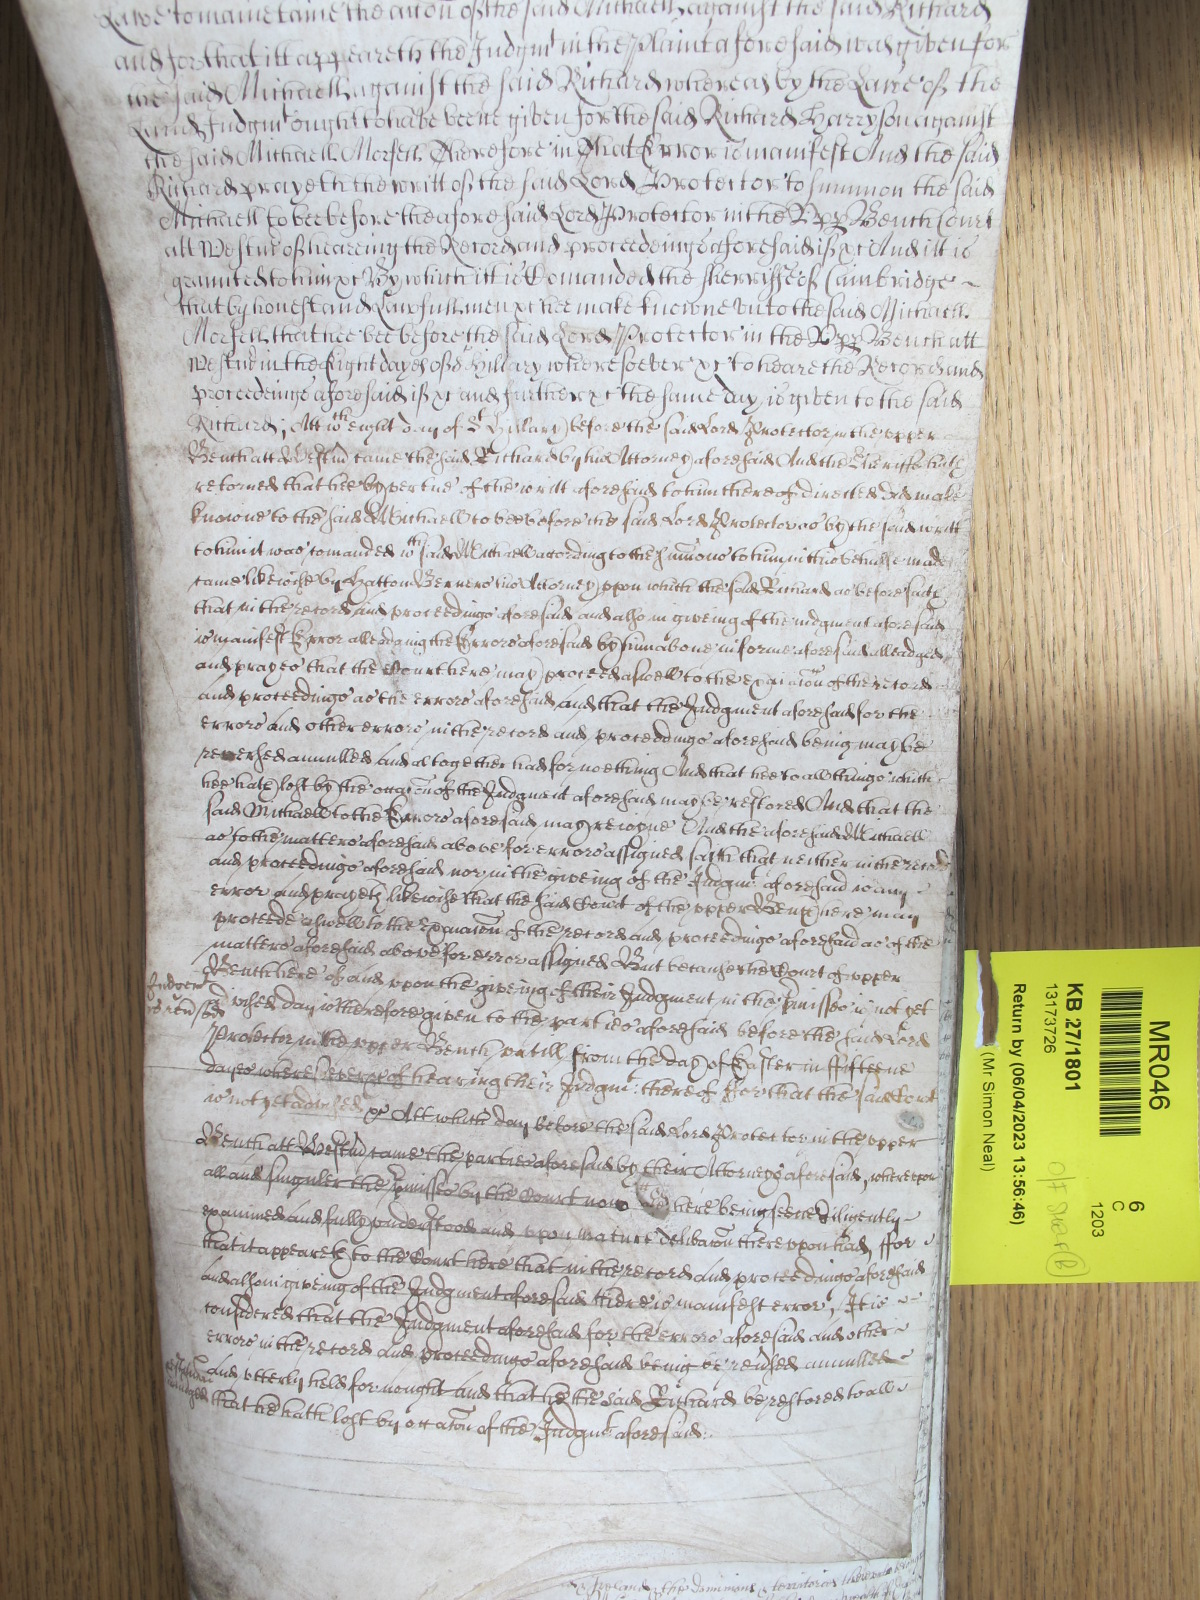 Lawe to maintaine the accon of the said Michaell against the said Richard
and for that itt appeareth the Judgmt in the plaint aforesaid was given for
the said Michaell against the said Richard whereas by the Lawe of the
Land Judgmt ought to have beene given for the said Richard Harryson against
the said Michaell Morsell Therefore in that Error is manifest And the said
Richard prayeth the writt of the said Lord Protector to summon the said
Michaell to bee before the aforesaid Lord Protector in the Upp Bench Court
att Westmr of heareing the Record and proceedeings aforesaid if &c And itt is
graunted to him &c By which itt is Comanded the Sherriffe of Cambridge
that by honest and Lawfull men &c hee make knowne unto the said Michaell
Morsell that hee bee before the said Lord Protector in the Upp Bench att
Westmr in the Eight dayes of St Hillary wheresoever &c to heare the Record and
proceedeings aforesaid if &c and further &c the same day is given to the said
Richard; Att wch eight day of St Hillary before the said Lord Protector in the upper
Bench att Westmr came the said Richard by his Attorney aforesaid And the Sheriffe hath
retorned that hee by vertue of the writt aforesaid to him thereof directed did make
knowne to the said Michaell to bee before the said Lord Protector as by the said writt
to him it was comanded wch said Michaell according to the sumons to him in this behalfe made
came likewise by Hatton Berners his Attorney upon which the said Richard as before saith
that in the record and proceedings aforesaid and also in giveing of the iudgment aforesaid
is manifest Error alleadging the Errors aforesaid by him above in forme aforesaid alleadged
and prayes that the Court here may proceed aswell to the exaiacon of the record
and proceedings as the errors aforesaid and that the Judgment aforesaid for the
errors and other errors in the record and proceedings aforesaid being may be
reversed annulled and altogether had for noething And that hee to all things which
hee hath lost by the occacon of the Judgment aforesaid may be restored And that the
said Michaell to the Errors aforesaid may reioyne And the aforesaid Michaell
as to the matters aforesaid above for errors assigned saith that neither in the record
and proceedings aforesaid nor in the giveing of the Judgmt aforesaid is any
error and prayeth likewise that the said Court of the upper Bench here may
proceede aswell to the exaiacon of the record and proceedings aforesaid as of the
matters aforesaid above for error assigned But because the Court of upper
Bench here of and upon the giveing of their Judgment in the pmisses is not yet
advised day is therefore given to the parties aforesaid before the said Lord
Protector in the upper Bench untill from the day of Easter in fifteene
dayes wheresoever &c of hearing their Judgmt thereof for that the said Court
is not yet advised &c Att which day before the said Lord Protector in the upper
Bench att Westmr came the parties aforesaid by their Attorneys aforesaid, whereupon
all and singuler the pmisses by the Court now here being seene diligently
examined and fully understood and upon mature deliberacon thereupon had, ffor
that it appeareth to the Court here that in the record and proceedings aforesaid
and also in giveing of the Judgment aforesaid there is manifest error, It is
considered that the Judgment aforesaid for the errors aforesaid and other
errors in the record and proceedings aforesaid being be revsed annulled
and utterly held for nought and that he the said Richard be restored to all
that he hath lost by occacon of the Judgmt aforesaid:
MR046
6
C
1203
KB 27/1801
13173726
Return by (06/04/2023 13:56:46)
(Mr Simon Neal)